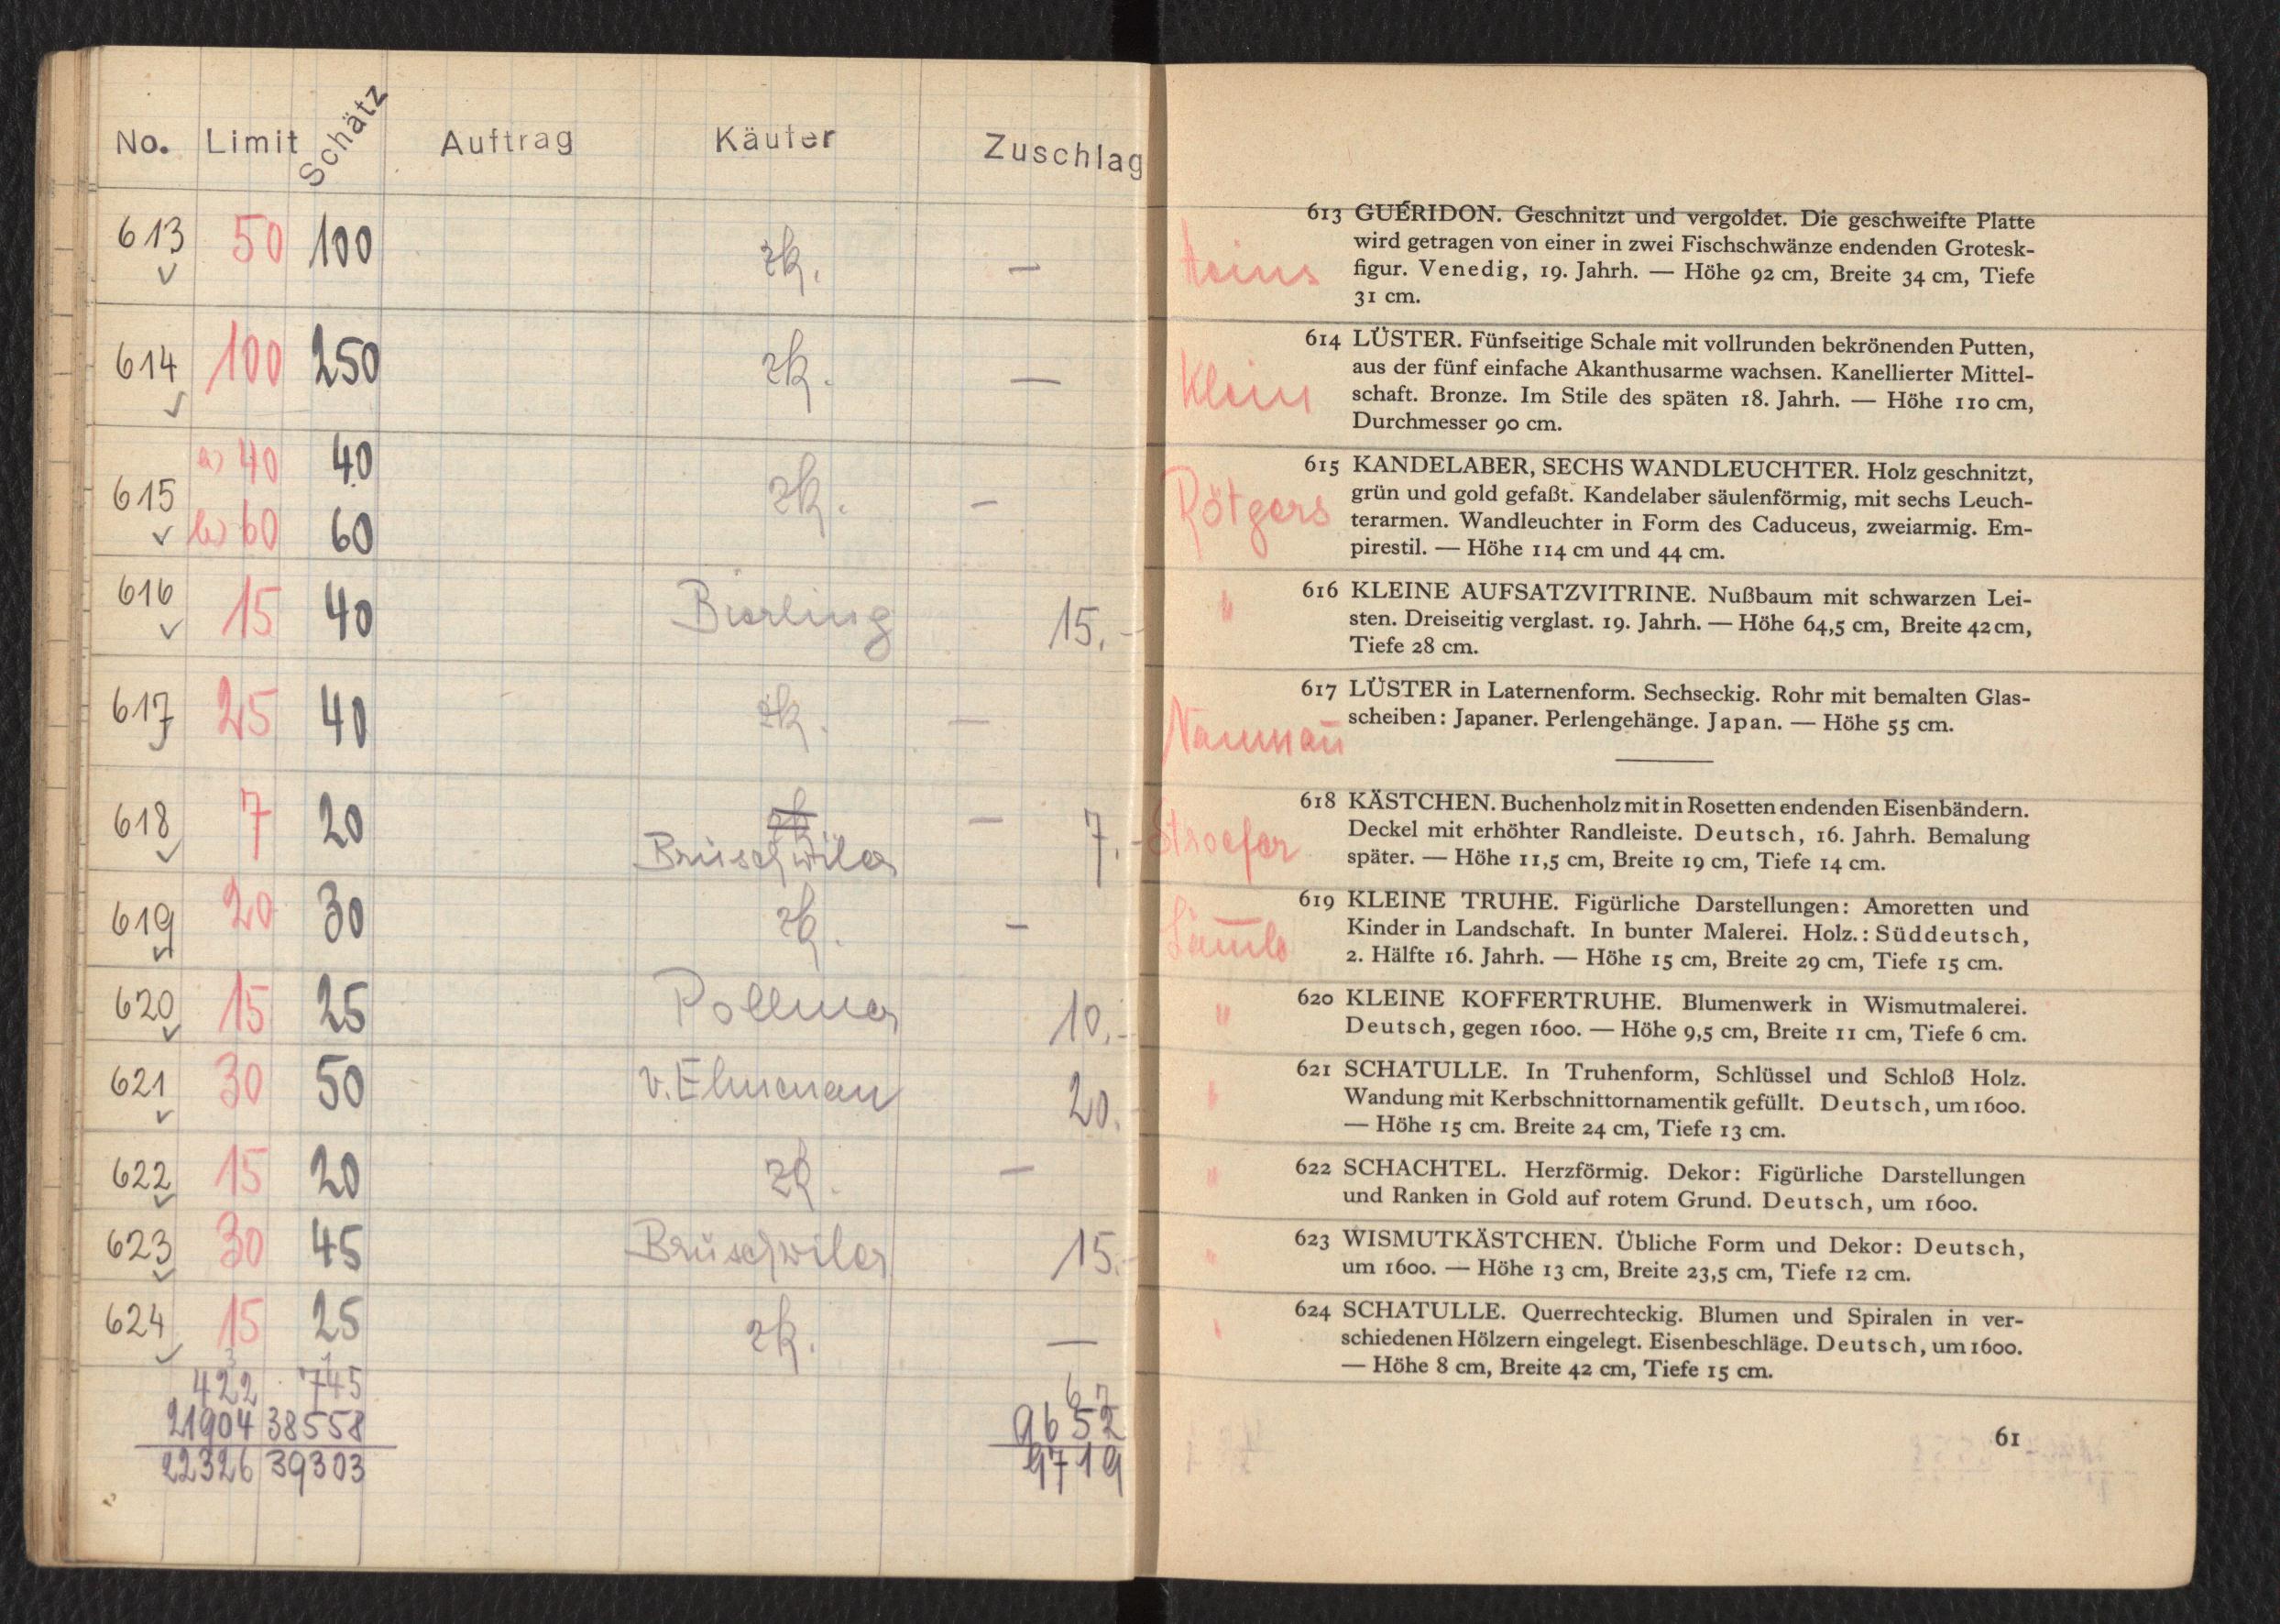 No. Limit Schätz Auftrag Käufer Zuschlag
613 50 100 zk. —
614 100 250 zk. —
a) 40 40
615 zk. —
b) 60 60
616 15 40 Bierling 15.-
617 25 40 zk. —
618 7 20 zk — 7.-
Brüschwiler
619 20 30 zk. —
620 15 25 10.-
621 30 50 20.
622 15 20 zk. —
623 30 45 Brüschwiler 15.-
624 15 25 zk. —
422 745 67
21904 38558 9652
22326 39303 9719
613 GUÉRIDON. Geschnitzt und vergoldet. Die geschweifte Platte
wird getragen von einer in zwei Fischschwänze endenden Grotesk-
figur. Venedig, 19. Jahrh. — Höhe 92 cm, Breite 34 cm, Tiefe
31 cm.
614 LÜSTER. Fünfseitige Schale mit vollrunden bekrönenden Putten,
aus der fünf einfache Akanthusarme wachsen. Kanellierter Mittel-
Klein
schaft. Bronze. Im Stile des späten 18. Jahrh. — Höhe 110 cm,
Durchmesser 90 cm.
615 KANDELABER, SECHS WANDLEUCHTER. Holz geschnitzt,
Rötgers
grün und gold gefaßt. Kandelaber säulenförmig, mit sechs Leuch-
terarmen. Wandleuchter in Form des Caduceus, zweiarmig. Em-
pirestil. — Höhe 114 cm und 44 cm.
" 616 KLEINE AUFSATZVITRINE. Nußbaum mit schwarzen Lei-
sten. Dreiseitig verglast. 19. Jahrh. — Höhe 64,5 cm, Breite 42 cm,
Tiefe 28 cm.
617 LÜSTER in Laternenform. Sechseckig. Rohr mit bemalten Glas-
Naumau
scheiben: Japaner. Perlengehänge. Japan. — Höhe 55 cm.
618 KÄSTCHEN. Buchenholz mit in Rosetten endenden Eisenbändern.
Stroefer
Deckel mit erhöhter Randleiste. Deutsch, 16. Jahrh. Bemalung
später. — Höhe 11,5 cm, Breite 19 cm, Tiefe 14 cm.
619 KLEINE TRUHE. Figürliche Darstellungen: Amoretten und
Kinder in Landschaft. In bunter Malerei. Holz.: Süddeutsch,
2. Hälfte 16. Jahrh. — Höhe 15 cm, Breite 29 cm, Tiefe 15 cm.
" 620 KLEINE KOFFERTRUHE. Blumenwerk in Wismutmalerei.
Deutsch, gegen 1600. — Höhe 9,5 cm, Breite 11 cm, Tiefe 6 cm.
" 621 SCHATULLE. In Truhenform, Schlüssel und Schloß Holz.
Wandung mit Kerbschnittornamentik gefüllt. Deutsch, um 1600.
— Höhe 15 cm. Breite 24 cm, Tiefe 13 cm.
" 622 SCHACHTEL. Herzförmig. Dekor: Figürliche Darstellungen
und Ranken in Gold auf rotem Grund. Deutsch, um 1600.
" 623 WISMUTKÄSTCHEN. Übliche Form und Dekor: Deutsch,
um 1600. — Höhe 13 cm, Breite 23,5 cm, Tiefe 12 cm.
" 624 SCHATULLE. Querrechteckig. Blumen und Spiralen in ver-
schiedenen Hölzern eingelegt. Eisenbeschläge. Deutsch, um 1600.
— Höhe 8 cm, Breite 42 cm, Tiefe 15 cm.
61